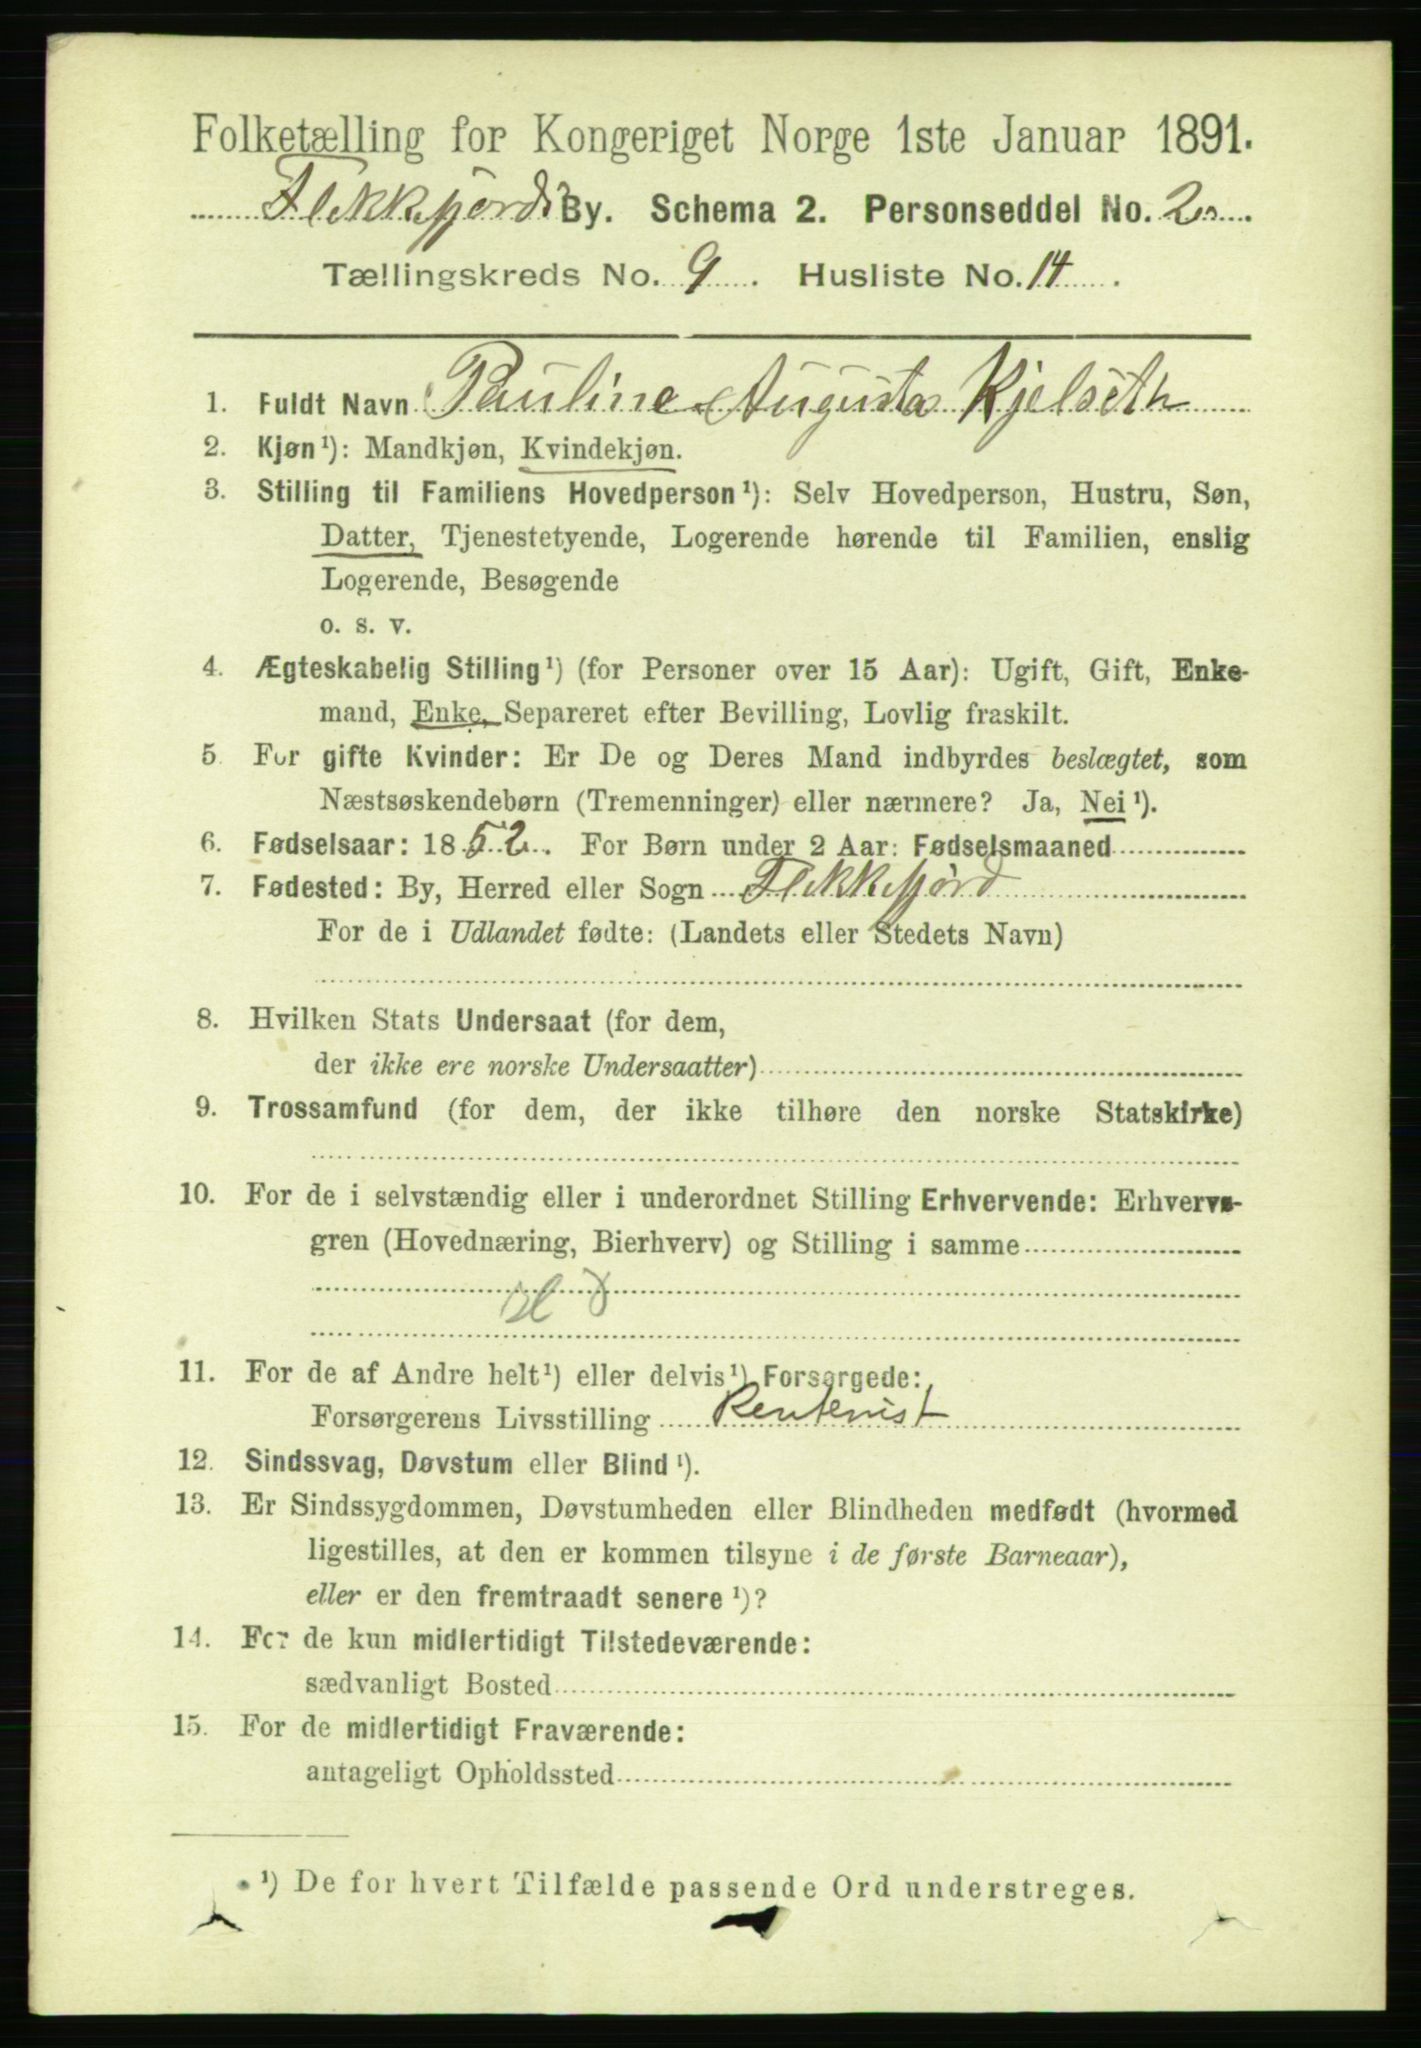 Folketælling for Kongeriget Norge 1ste Januar 1891.
Flekkefjords By. Schema 2. Personseddel No. 2.
Tællingskreds No. 9. Husliste No. 14.
1. Fuldt Navn Pauline Augusta Kjelseth
2. Kjøn¹): Mandkjøn, Kvindekjøn.
3. Stilling til Familiens Hovedperson¹): Selv Hovedperson, Hustru, Søn,
Datter, Tjenestetyende, Logerende hørende til Familien, enslig
Logerende, Besøgende
o. s. v.
4. Ægteskabelig Stilling¹) (for Personer over 15 Aar): Ugift, Gift, Enke-
mand, Enke, Separeret efter Bevilling, Lovlig fraskilt.
5. For gifte Kvinder: Er De og Deres Mand indbyrdes beslægtet, som
Næstsøskendebørn (Tremenninger) eller nærmere? Ja, Nei¹).
6. Fødselsaar: 1852. For Børn under 2 Aar: Fødselsmaaned
7. Fødested: By, Herred eller Sogn Flekkefjord
For de i Udlandet fødte: (Landets eller Stedets Navn)
8. Hvilken Stats Undersaat (for dem,
der ikke ere norske Undersaatter)
9. Trossamfund (for dem, der ikke tilhøre den norske Statskirke)
10. For de i selvstændig eller i underordnet Stilling Erhvervende: Erhvervs-
gren (Hovednæring, Bierhverv) og Stilling i samme
11. For de af Andre helt¹) eller delvis¹) Forsørgede:
Forsørgerens Livsstilling Rentenist
12. Sindssvag, Døvstum eller Blind¹).
13. Er Sindssygdommen, Døvstumheden eller Blindheden medfødt (hvormed
ligestilles, at den er kommen tilsyne i de første Barneaar),
eller er den fremtraadt senere¹)?
14. For de kun midlertidigt Tilstedeværende:
sædvanligt Bosted
15. For de midlertidigt Fraværende:
antageligt Opholdssted
¹) De for hvert Tilfælde passende Ord understreges.